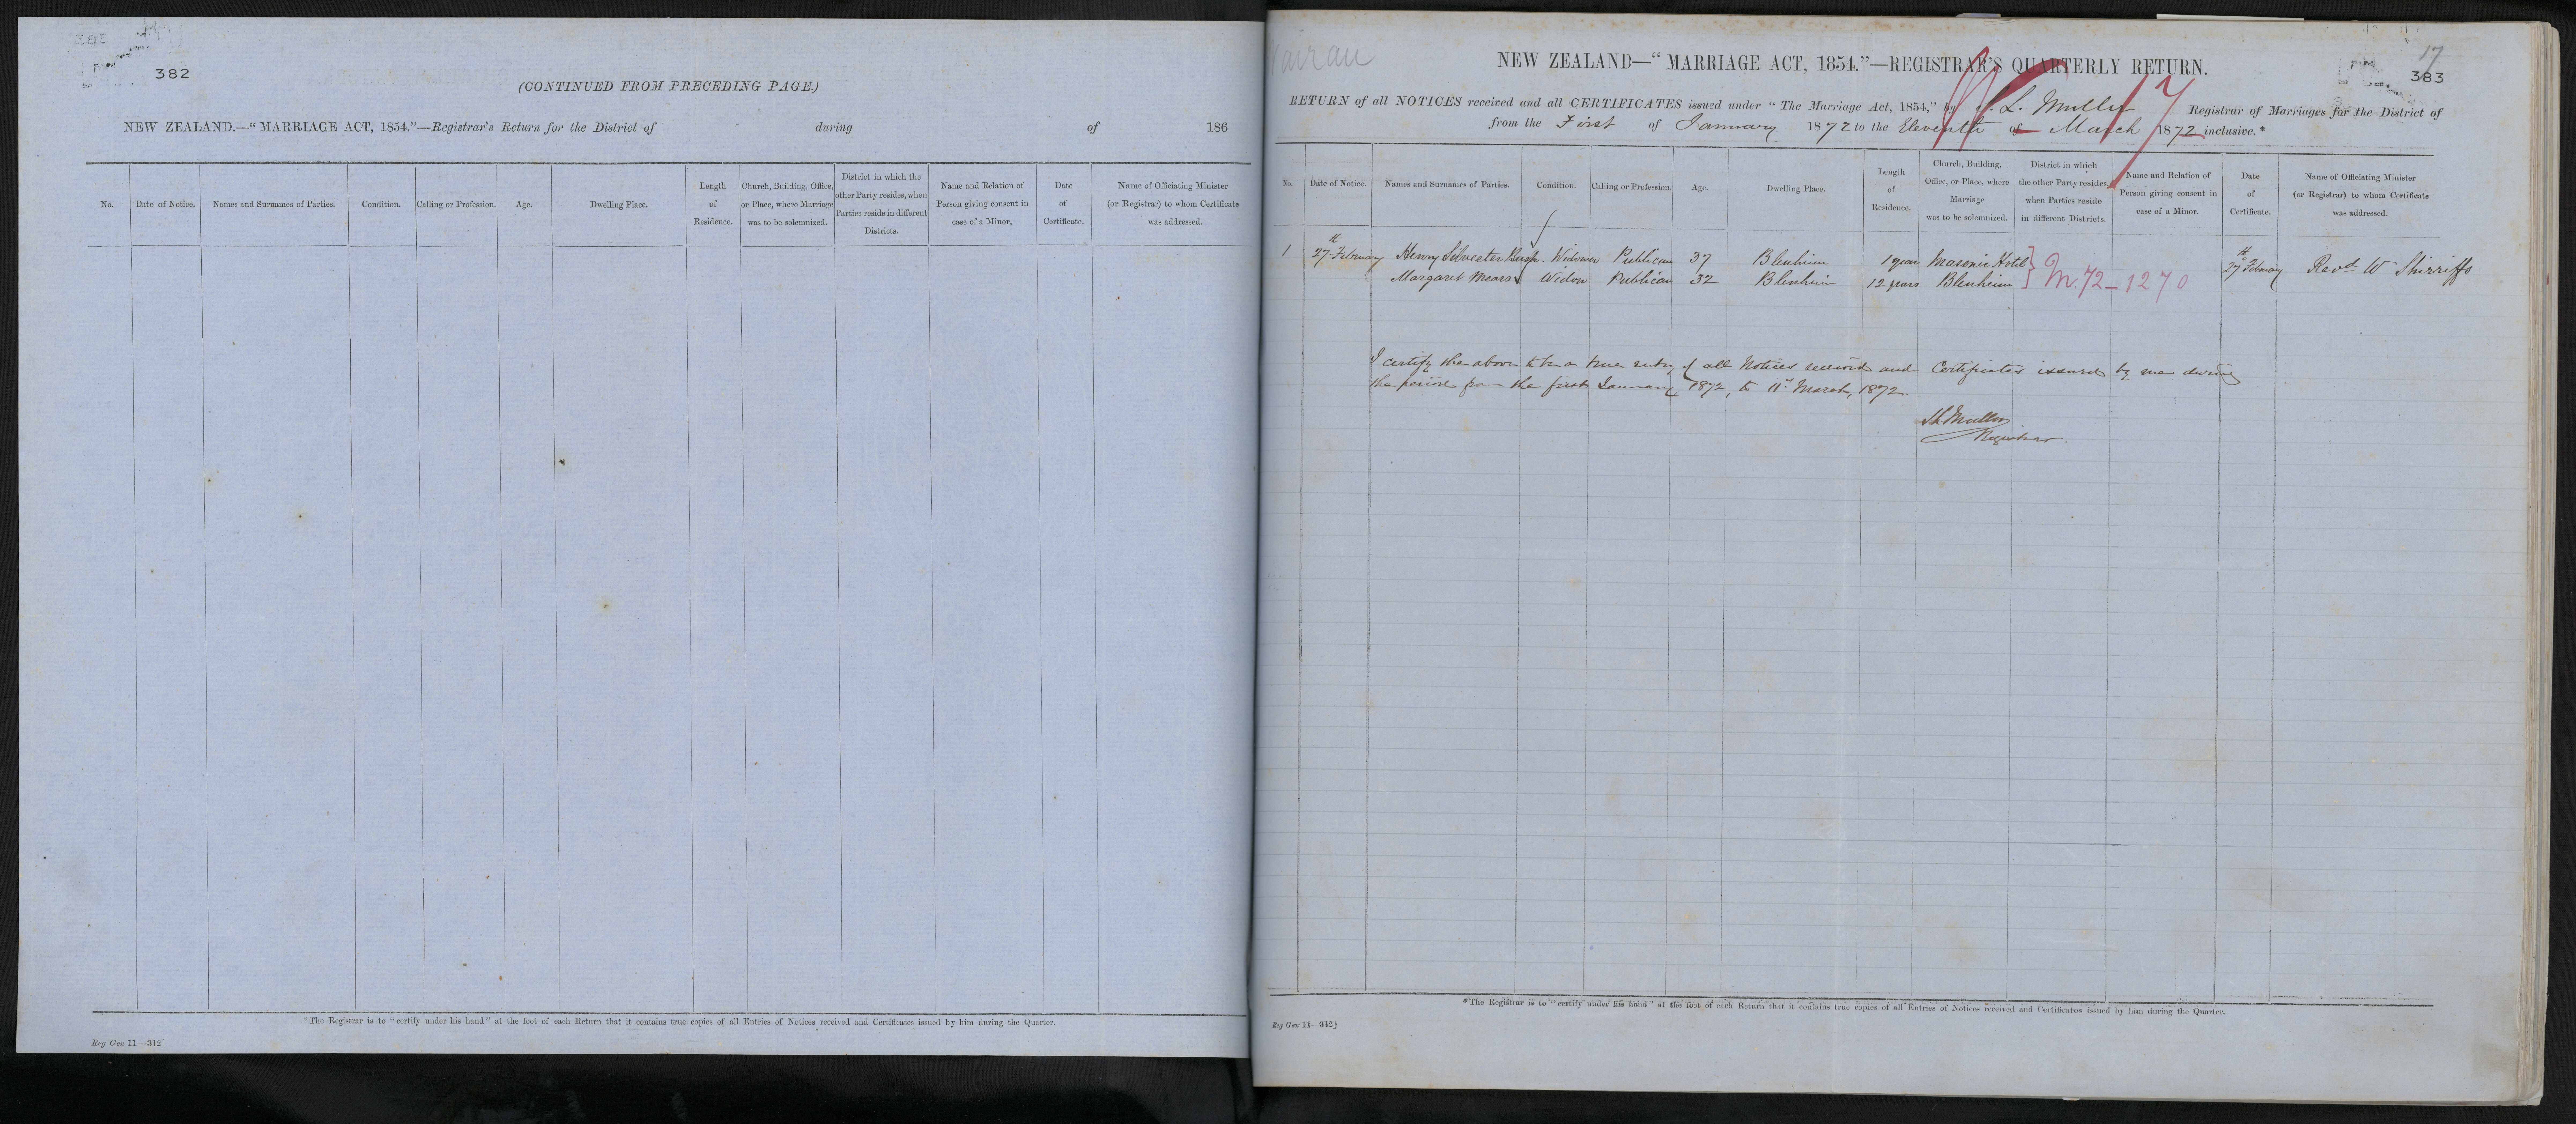 382
(CONTINUED FROM PRECEDING PAGE.)
NEW ZEALAND.—"MARRIAGE ACT, 1854."—Registrar's Return for the District of during of 186
No.
Date of Notice.
Names and Surnames of Parties.
Condition.
Calling or Profession.
Age.
Dwelling Place.
Length
of
Residence.
Church, Building, Office,
or Place, where Marriage
was to be solemnized.
District in which the
other Party resides, when
Parties reside in different
Districts.
Name and Relation of
Person giving consent in
case of a Minor.
Date
of
Certificate.
Name of Officiating Minister
(or Registrar) to whom Certificate
was addressed.
*The Registrar is to "certify under his hand" at the foot of each Return that it contains true copies of all Entries of Notices received and Certificates issued by him during the Quarter.
Reg Gen 11—312]
Wairau
17
383
NEW ZEALAND—"MARRIAGE ACT, 1854."—REGISTRAR'S QUARTERLY RETURN.
RETURN of all NOTICES received and all CERTIFICATES issued under "The Marriage Act, 1854," by S. L. Muller Registrar of Marriages for the District of
from the First of January 1872 to the Eleventh of March 1872 inclusive.*
No.
Date of Notice.
Names and Surnames of Parties.
Condition.
Calling or Profession.
Age.
Dwelling Place.
Length
of
Residence.
Church, Building,
Office, or Place, where
Marriage
was to be solemnized.
District in which
the other Party resides,
when Parties reside
in different Districts.
Name and Relation of
Person giving consent in
case of a Minor.
Date
of
Certificate.
Name of Officiating Minister
(or Registrar) to whom Certificate
was addressed.
1 27th February Henry Silvester Widower Publican 37 Blenheim 1 year Masonic Hotel 27th February Revd W Shirriffs
Margaret Mears Widow Publican 32 Blenheim 12 years Blenheim M.72-1270
I certify the above to be a true entry of all Notices received and Certificates issued by me during
the period from the first January 1872, to 11th March, 1872.
S L Muller
Registrar
*The Registrar is to "certify under his hand" at the foot of each Return that it contains true copies of all Entries of Notices received and Certificates issued by him during the Quarter.
Reg Gen 11—312]